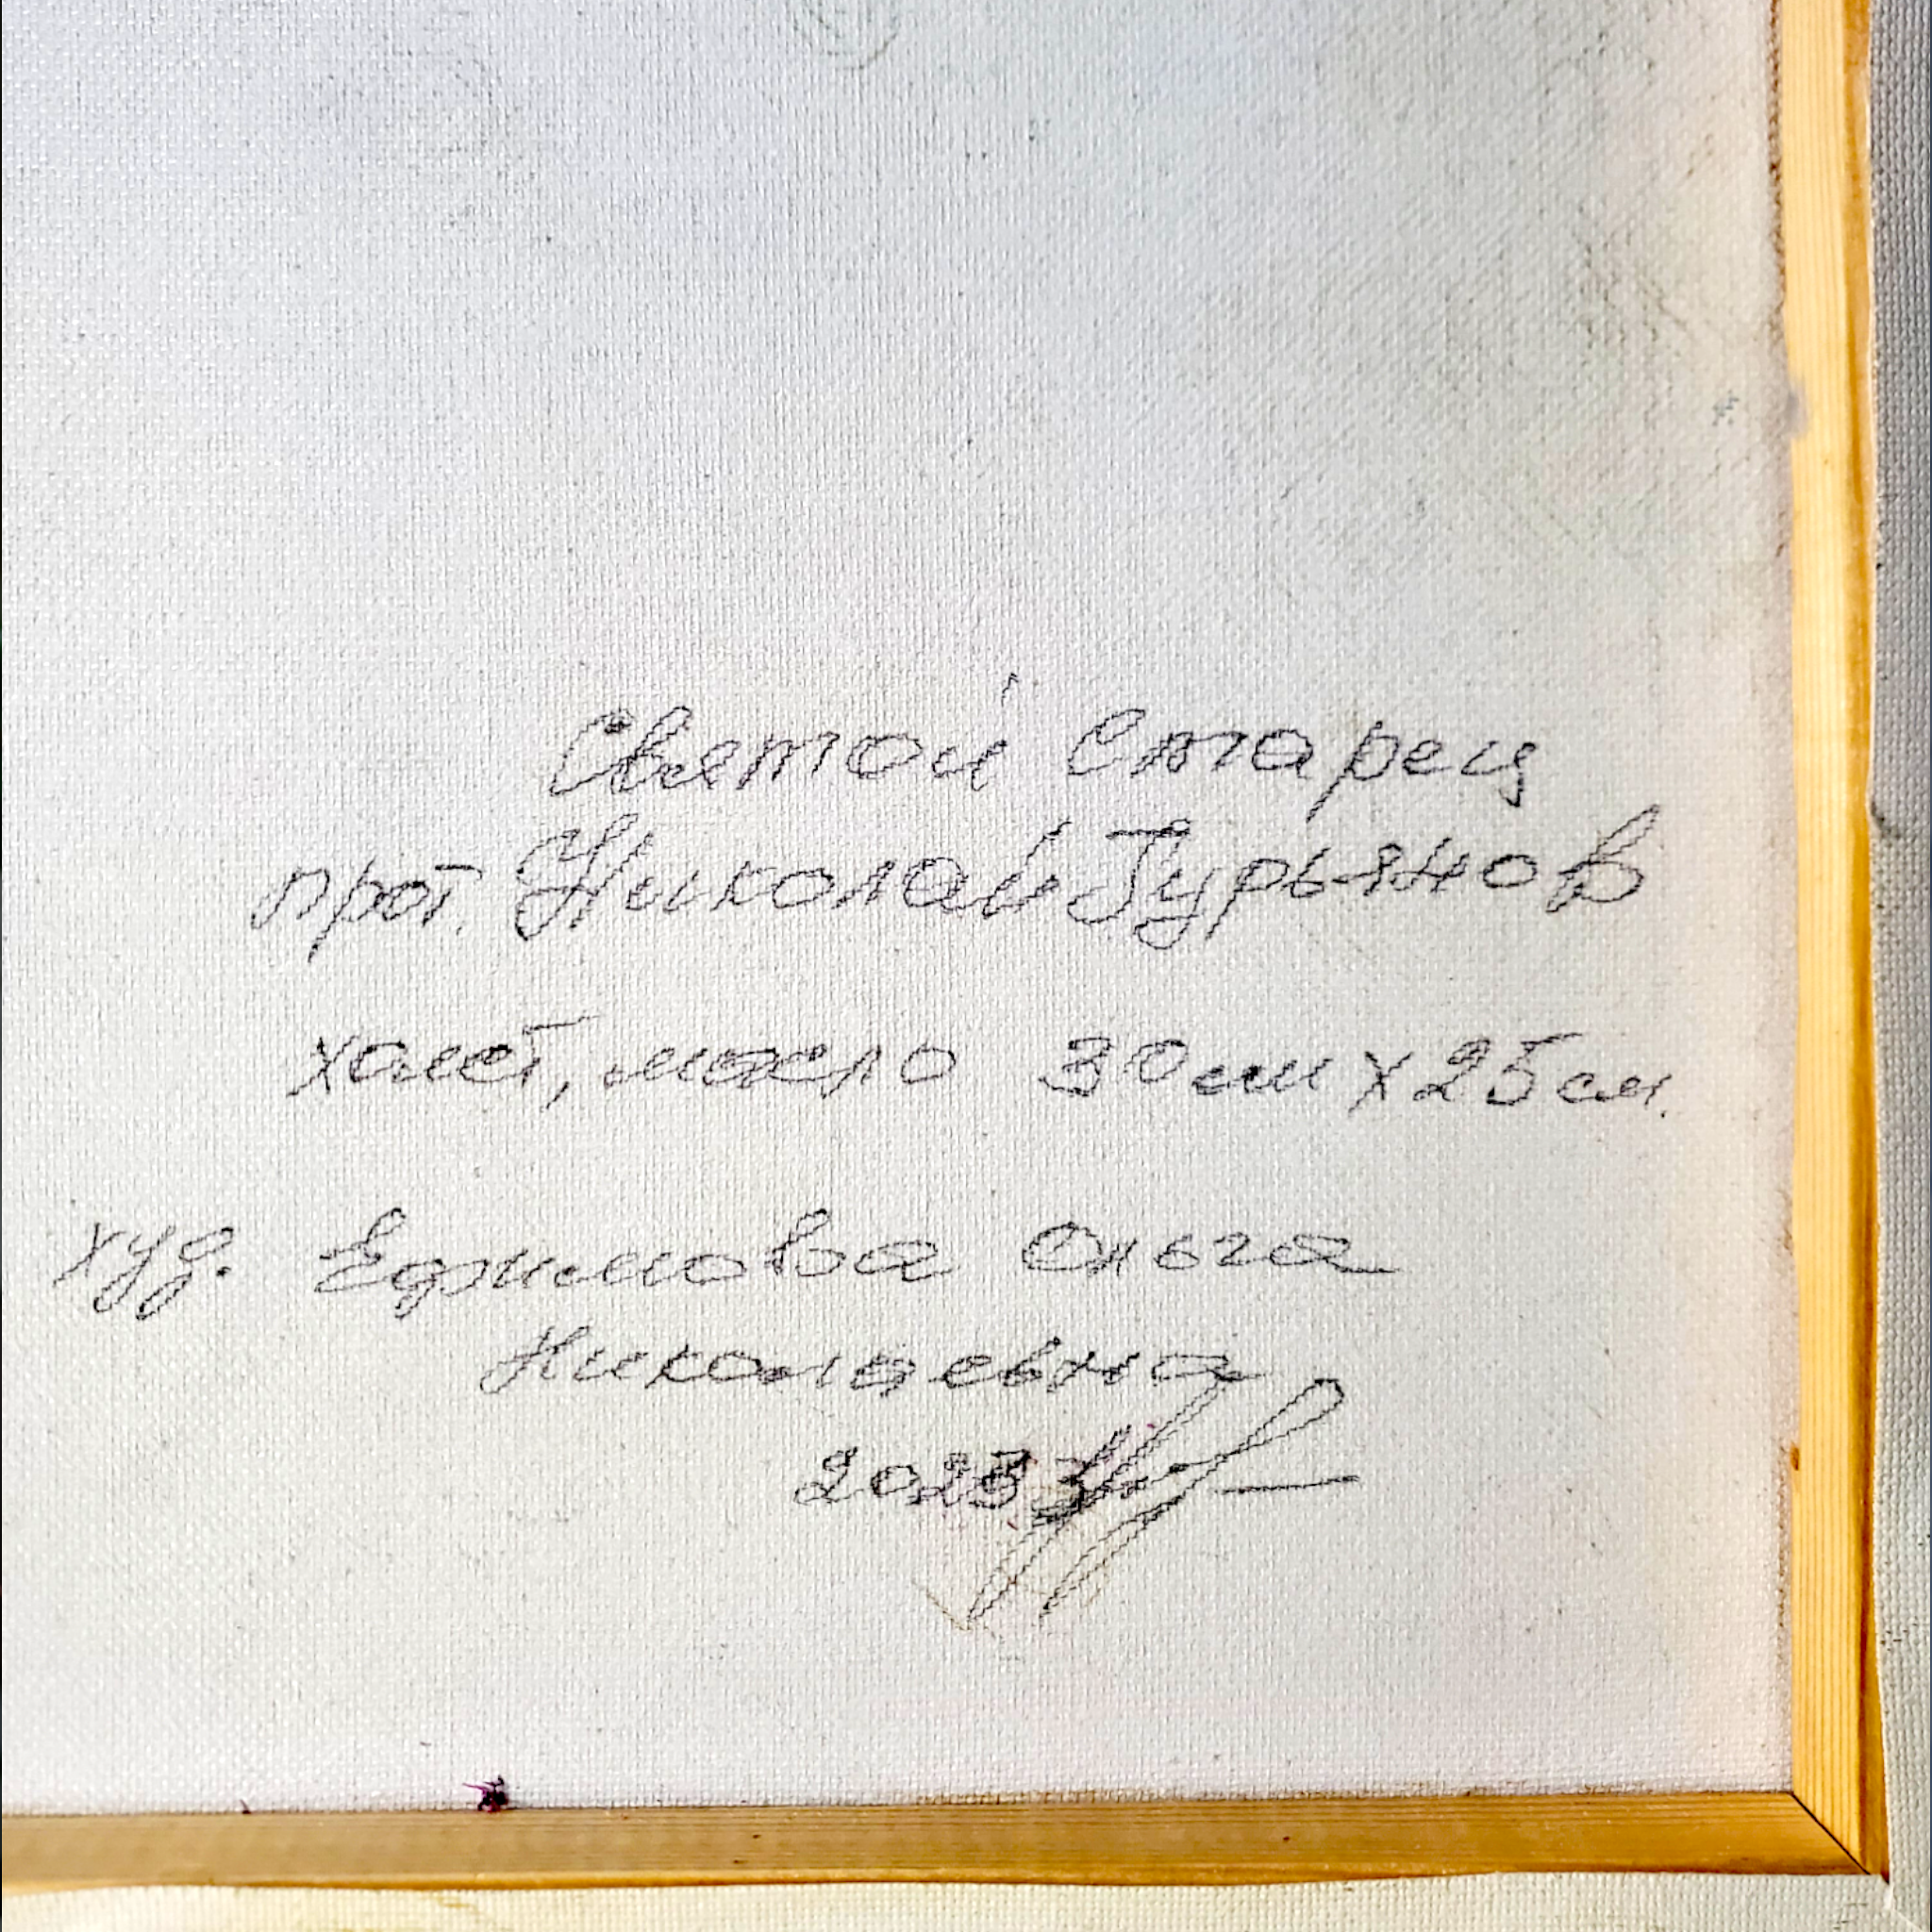 Святой Старец
прот. Николай Гурьянов
холст, масло 30 см х 25 см.
худ. Ефимова Ольга
Николаевна
2023